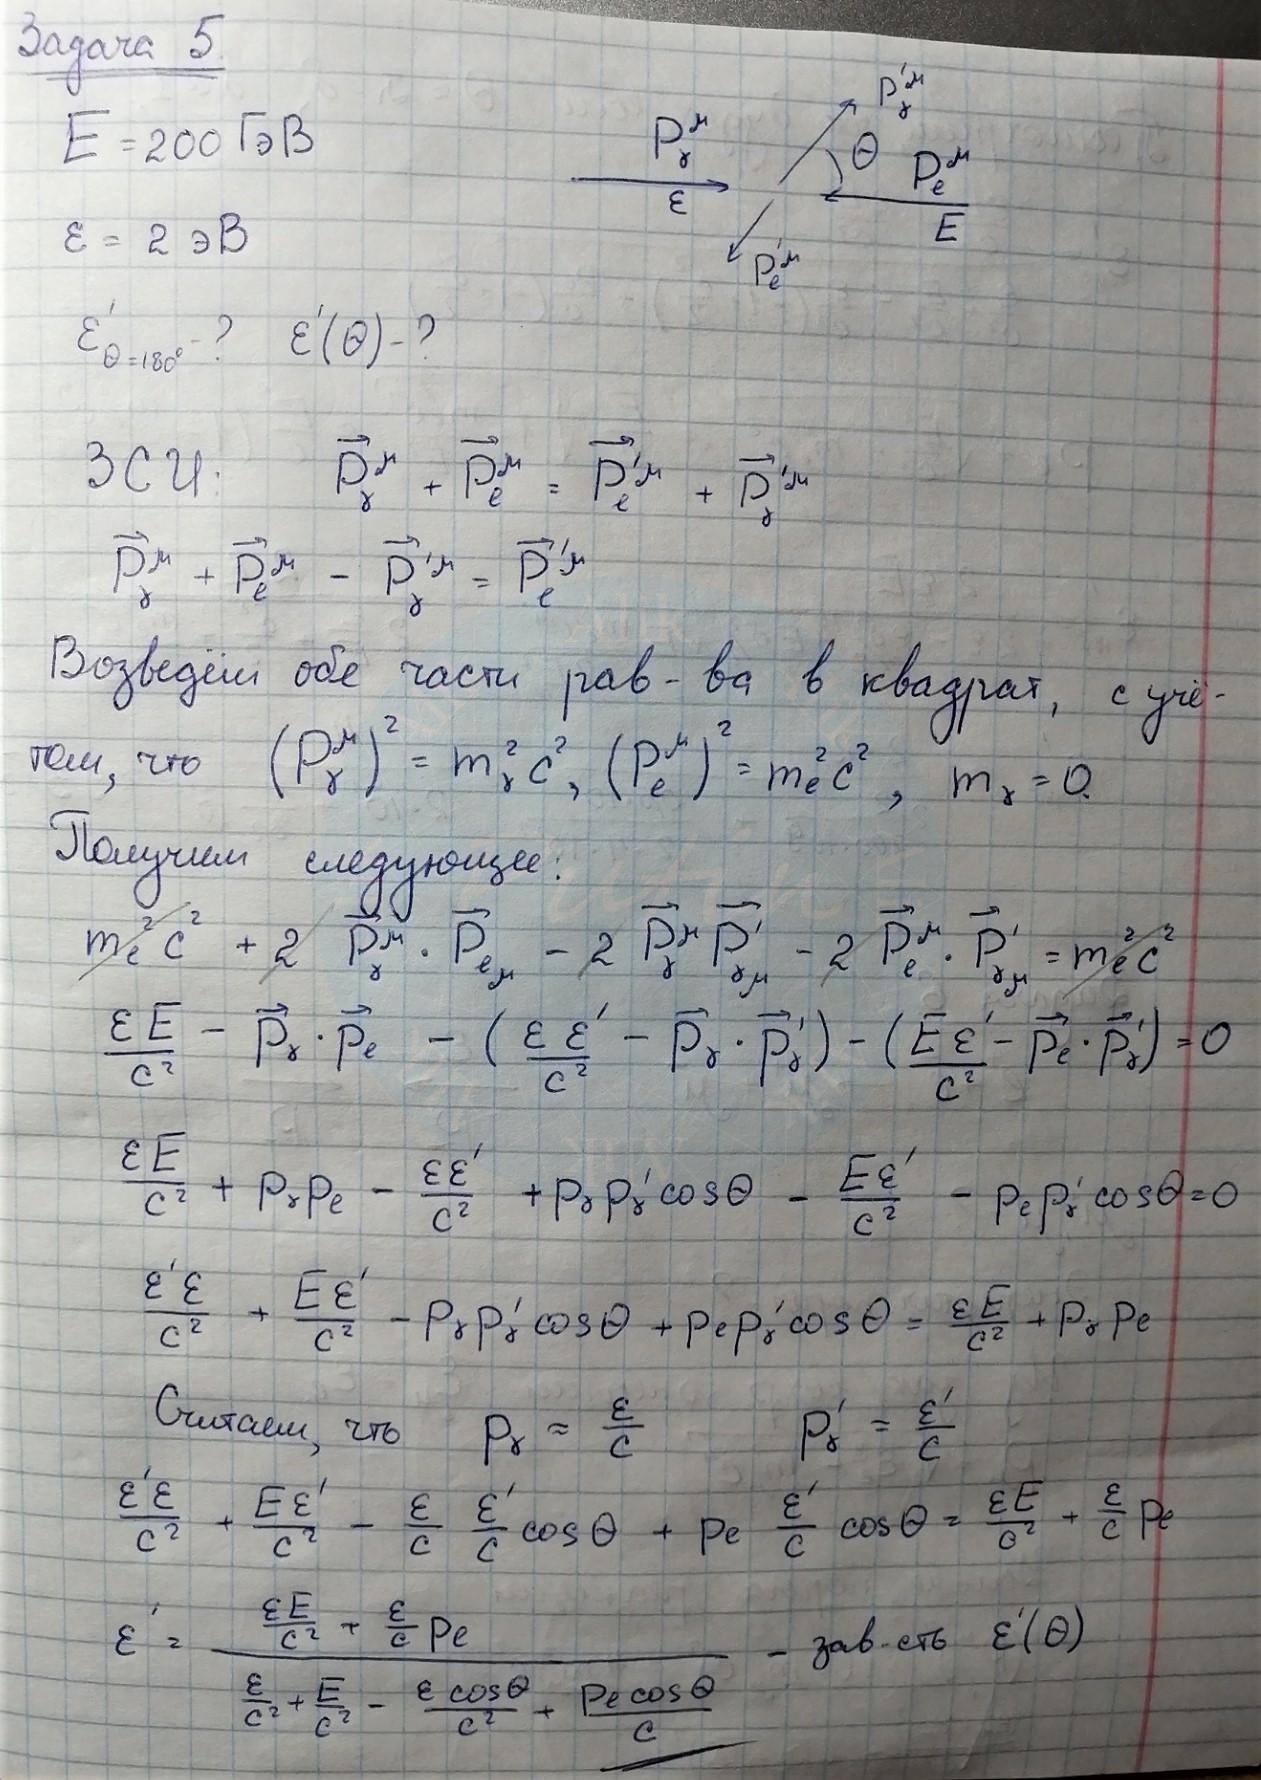 Задача 5
E = 200 ГэВ
ε = 2 эВ
P_γ^μ ε P'_γ^μ θ P_e^μ E P'_e^μ
ε'_{θ=180°} - ? ε'(θ) - ?
ЗСИ: \vec{P}_γ^μ + \vec{P}_e^μ = \vec{P}'_e^μ + \vec{P}'_γ^μ
\vec{P}_γ^μ + \vec{P}_e^μ - \vec{P}'_γ^μ = \vec{P}'_e^μ
Возведём обе части рав-ва в квадрат, с учё-
том, что (P_γ^μ)² = m_γ² c², (P_e^μ)² = m_e² c², m_γ = 0.
Получим следующее:
m_e² c² + 2 \vec{P}_γ^μ · \vec{P}_{e μ} - 2 \vec{P}_γ^μ \vec{P}'_{γ μ} - 2 \vec{P}_e^μ · \vec{P}'_{γ μ} = m_e² c²
εE/c² - \vec{p}_γ · \vec{p}_e - (εε'/c² - \vec{p}_γ · \vec{p}'_γ) - (Eε'/c² - \vec{p}_e · \vec{p}'_γ) = 0
εE/c² + p_γ p_e - εε'/c² + p_γ p'_γ cosθ - Eε'/c² - p_e p'_γ cosθ = 0
ε'ε/c² + Eε'/c² - p_γ p'_γ cosθ + p_e p'_γ cosθ = εE/c² + p_γ p_e
Считаем, что p_γ ≈ ε/c p'_γ = ε'/c
ε'ε/c² + Eε'/c² - ε/c ε'/c cosθ + p_e ε'/c cosθ = εE/c² + ε/c p_e
ε' = (εE/c² + ε/c p_e) / (ε/c² + E/c² - ε cosθ/c² + p_e cosθ/c) - зав-сть ε'(θ)